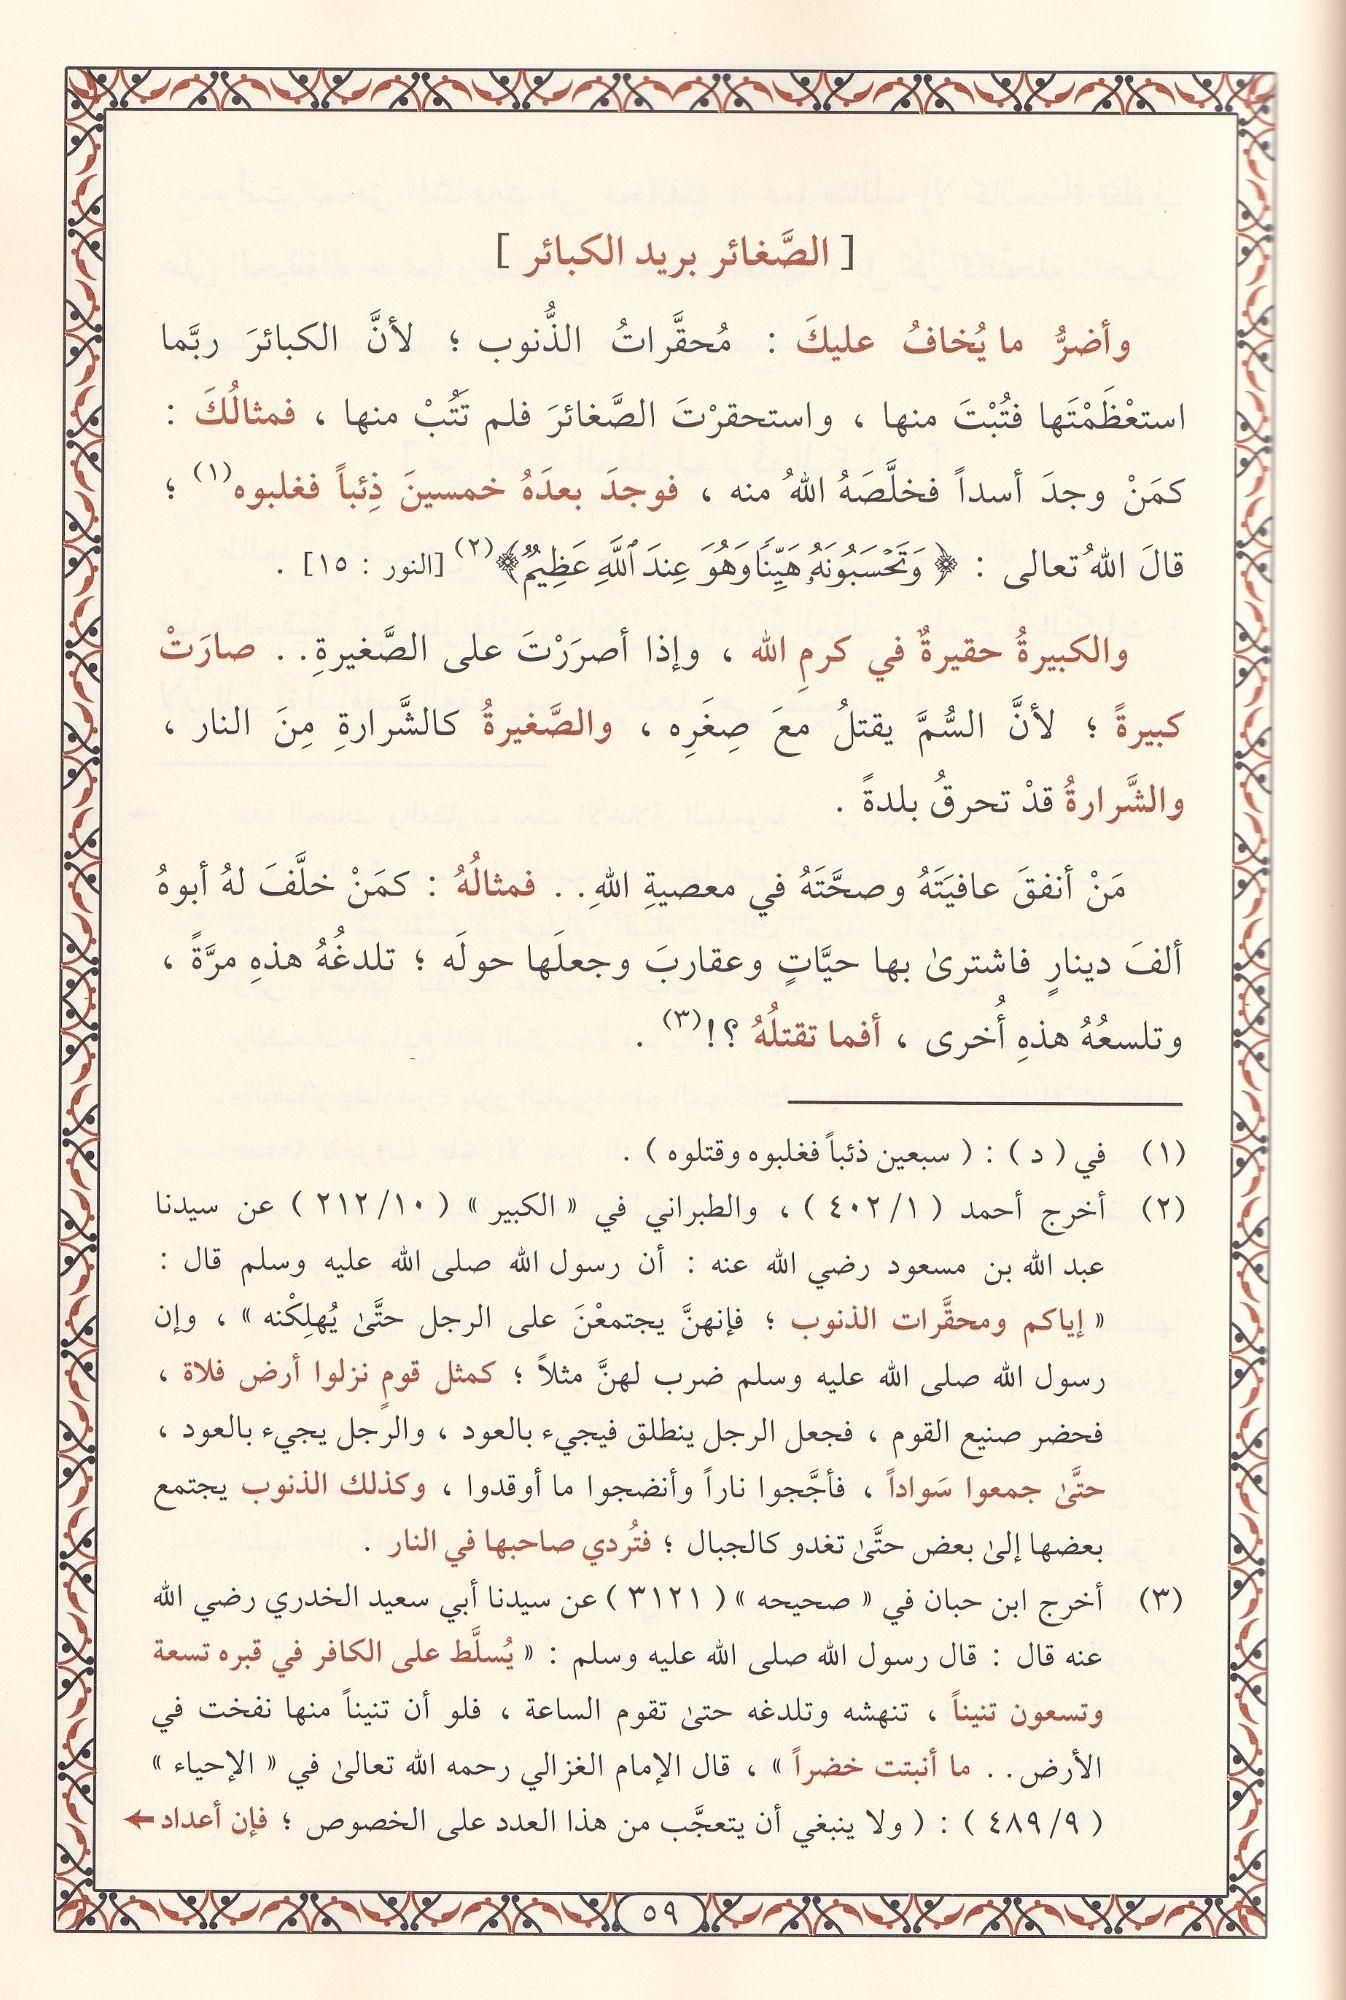 [ الصَّغائر بريد الكبائر ]
وأضرُّ ما يُخافُ عليكَ : مُحقَّراتُ الذُّنوب ؛ لأنَّ الكبائرَ ربَّما
استعْظَمْتَها فتُبْتَ منها ، واستحقرْتَ الصَّغائرَ فلم تَتُبْ منها ، فمثالُكَ :
كمَنْ وجدَ أسداً فخلَّصَهُ اللهُ منه ، فوجدَ بعدَهُ خمسينَ ذِئباً فغلبوه(١) ؛
قالَ اللهُ تعالى : ﴿ وَتَحْسَبُونَهُۥ هَيِّنًا وَهُوَ عِندَ ٱللَّهِ عَظِيمٌ ﴾(٢) [النور : ١٥] .
والكبيرةُ حقيرةٌ في كرمِ الله ، وإذا أصرَرْتَ على الصَّغيرةِ.. صارَتْ
كبيرةً ؛ لأنَّ السُّمَّ يقتلُ معَ صِغَرِه ، والصَّغيرةُ كالشَّرارةِ مِنَ النار ،
والشَّرارةُ قدْ تحرقُ بلدةً .
مَنْ أنفقَ عافيَتَهُ وصحَّتَهُ في معصيةِ اللهِ.. فمثالُهُ : كمَنْ خلَّفَ لهُ أبوهُ
ألفَ دينارٍ فاشترىٰ بها حيَّاتٍ وعقاربَ وجعلَها حولَه ؛ تلدغُهُ هذهِ مرَّةً ،
وتلسعُهُ هذهِ أُخرى ، أفما تقتلُهُ ؟!(٣) .
(١) في ( د ) : ( سبعين ذئباً فغلبوه وقتلوه ) .
(٢) أخرج أحمد ( ٤٠٢/١ ) ، والطبراني في « الكبير » ( ٢١٢/١٠ ) عن سيدنا
عبد الله بن مسعود رضي الله عنه : أن رسول الله صلى الله عليه وسلم قال :
« إياكم ومحقَّرات الذنوب ؛ فإنهنَّ يجتمعْنَ على الرجل حتَّىٰ يُهلِكْنه » ، وإن
رسول الله صلى الله عليه وسلم ضرب لهنَّ مثلاً ؛ كمثل قومٍ نزلوا أرض فلاة ،
فحضر صنيع القوم ، فجعل الرجل ينطلق فيجيء بالعود ، والرجل يجيء بالعود ،
حتَّىٰ جمعوا سَواداً ، فأجَّجوا ناراً وأنضجوا ما أوقدوا ، وكذلك الذنوب يجتمع
بعضها إلىٰ بعض حتَّىٰ تغدو كالجبال ؛ فتُردي صاحبها في النار .
(٣) أخرج ابن حبان في « صحيحه » ( ٣١٢١ ) عن سيدنا أبي سعيد الخدري رضي الله
عنه قال : قال رسول الله صلى الله عليه وسلم : « يُسلَّط على الكافر في قبره تسعة
وتسعون تنيناً ، تنهشه وتلدغه حتىٰ تقوم الساعة ، فلو أن تنيناً منها نفخت في
الأرض.. ما أنبتت خضراً » ، قال الإمام الغزالي رحمه الله تعالىٰ في « الإحياء »
( ٤٨٩/٩ ) : ( ولا ينبغي أن يتعجَّب من هذا العدد على الخصوص ؛ فإن أعداد ←
٥٩